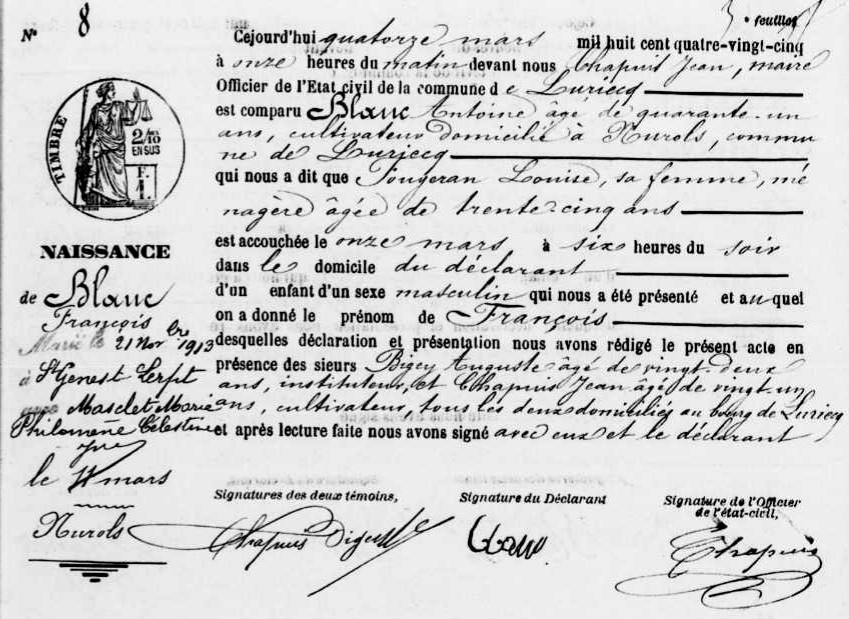 N° 8
feuillet
Cejourd'hui quatorze mars mil huit cent quatre-vingt-cinq
à onze heures du matin devant nous Chapuis Jean, maire
Officier de l'Etat civil de la commune de Luriecq
est comparu Blanc Antoine âgé de quarante-un
ans, cultivateur domicilié à Nurols, commu
ne de Luriecq
qui nous a dit que Fougeran Louise, sa femme, mé
nagère âgée de trente-cinq ans
est accouchée le onze mars à six heures du soir
dans le domicile du déclarant
d'un enfant d'un sexe masculin qui nous a été présenté et auquel
on a donné le prénom de François
desquelles déclaration et présentation nous avons rédigé le présent acte en
présence des sieurs Auguste âgé de vingt-deux
ans, instituteur, et Chapuis Jean âgé de vingt-un
ans, cultivateur, tous les deux domiciliés au bourg de Luriecq
et après lecture faite nous avons signé avec eux et le déclarant
TIMBRE
2/10 EN SUS
NAISSANCE
de Blanc
François
Marié le 21 Nov bre 1913
à St Genest Lerpt
avec Masclet Marie
Philomène Célestine
le 11 mars
Nurols
Signatures des deux témoins,
Signature du Déclarant
Signature de l'Officier
de l'état-civil,
Chapuis
Blanc
Chapuis